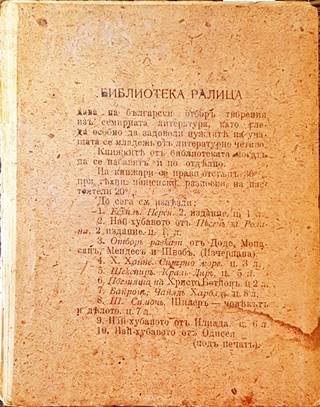 БИБЛИОТЕКА РАЛИЦА
дава на български отборъ творения
изъ семирната литература, като гле-
да особно да задоволи нуждитѣ на уча-
щата се младежь отъ литературно четиво.
Книжкитѣ отъ библиотеката могатъ
да се набавятъ и по отдѣлно.
На книжари се прави отстѫпъ 30%
при тѣхни разноски, на нас-
тоятели 20%.
До сега сѫ излѣзли:
1. Персий. 2. издание. ц. 1 л.
2. Най-хубавото отъ Пѣсеньта за Рола-
на. 2. издание. ц. 1. л.
3. Отборъ разкази отъ Доде, Мопа-
санъ, Мендесъ и Швобъ. (Изчерпана).
4. Х. Хайне. Северно море. ц. 3 л.
5. Шекспиръ. Краль Лиръ. ц. 5 л.
6. Поезията на Христо Ботйовъ. ц. 2 л.
7. Байронъ. Чайлдъ Харолдъ. ц. 8 л.
8. Ш. Симонъ. Шилеръ — човѣкътъ
и дѣлото. ц. 7 л.
9. Най-хубавото отъ Илиада. ц. 6 л
10. Най-хубавото отъ Одисея
(подъ печатъ).